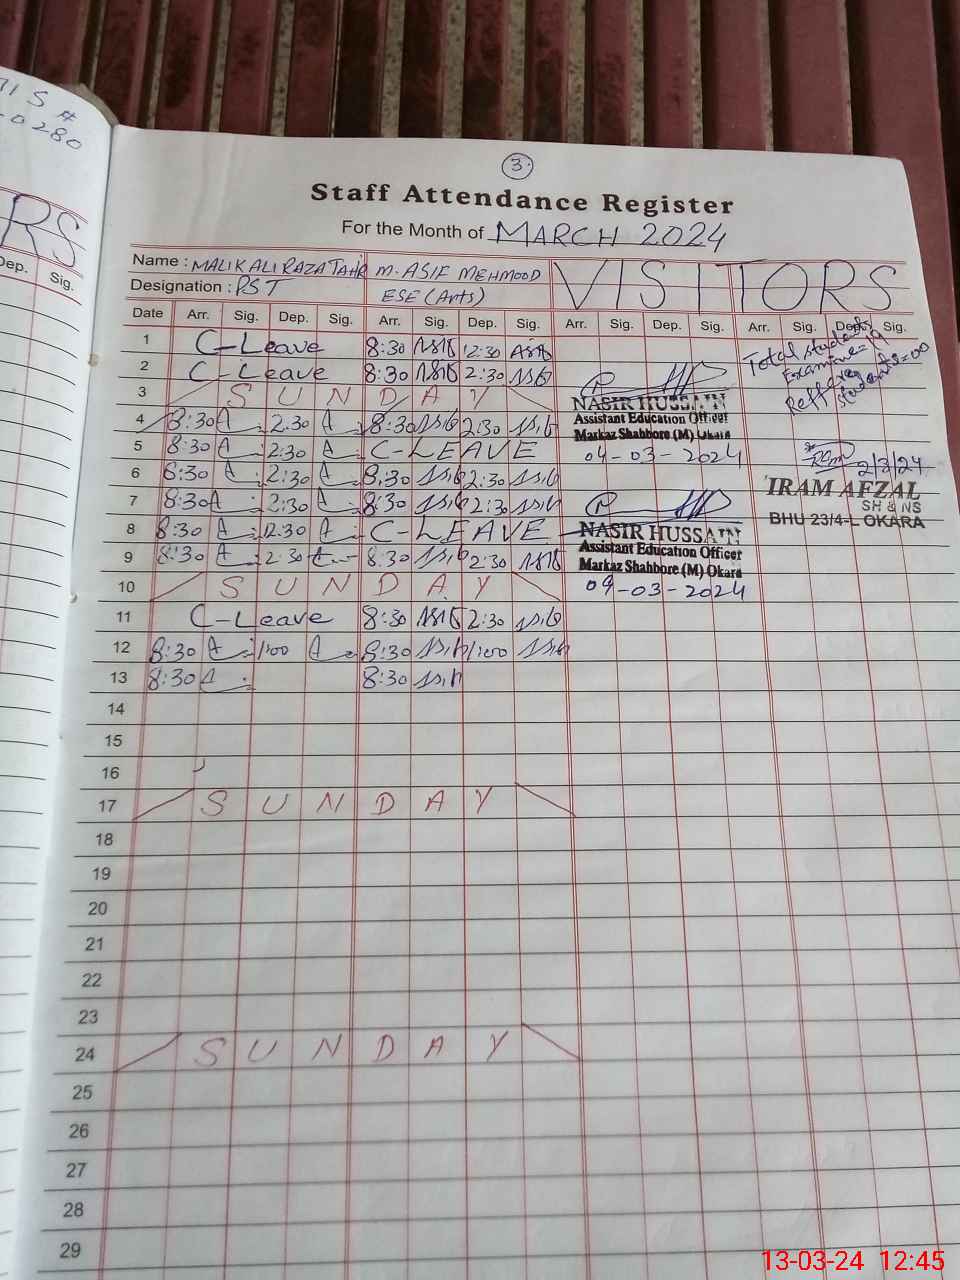 71 S #
0280
RS
Dep. Sig.
3.
Staff Attendance Register
For the Month of MARCH 2024
Name : MALIK ALI RAZA TAHIR M. ASIF MEHMOOD VISITORS
Designation : PST ESE (Arts)
Date Arr. Sig. Dep. Sig. Arr. Sig. Dep. Sig. Arr. Sig. Dep. Sig. Arr. Sig. Dep. Sig.
1 C-Leave 8:30 12:30
2 C-Leave 8:30 2:30
3 SUNDAY
4 8:30 2:30 8:30 2:30
5 8:30 2:30 C-LEAVE
6 8:30 2:30 8:30 2:30
7 8:30 2:30 8:30 2:30
8 8:30 12:30 C-LEAVE
9 8:30 2:30 8:30 2:30
10 SUNDAY
11 C-Leave 8:30 2:30
12 8:30 1:00 8:30 1:00
13 8:30 8:30
14
15
16
17 SUNDAY
18
19
20
21
22
23
24 SUNDAY
25
26
27
28
29
NASIR HUSSAIN
Assistant Education Officer
Markaz Shahbore (M) Okara
04-03-2024
NASIR HUSSAIN
Assistant Education Officer
Markaz Shahbore (M) Okara
09-03-2024
Total students
Examine=19
students=00
2/3/24
IRAM AFZAL
SH & NS
BHU 23/4-L OKARA
13-03-24 12:45